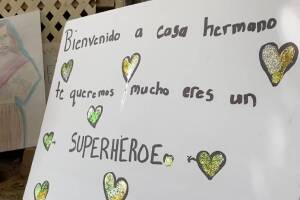 Bienvenido a casa hermano
te queremos mucho eres un
SUPERHEROE